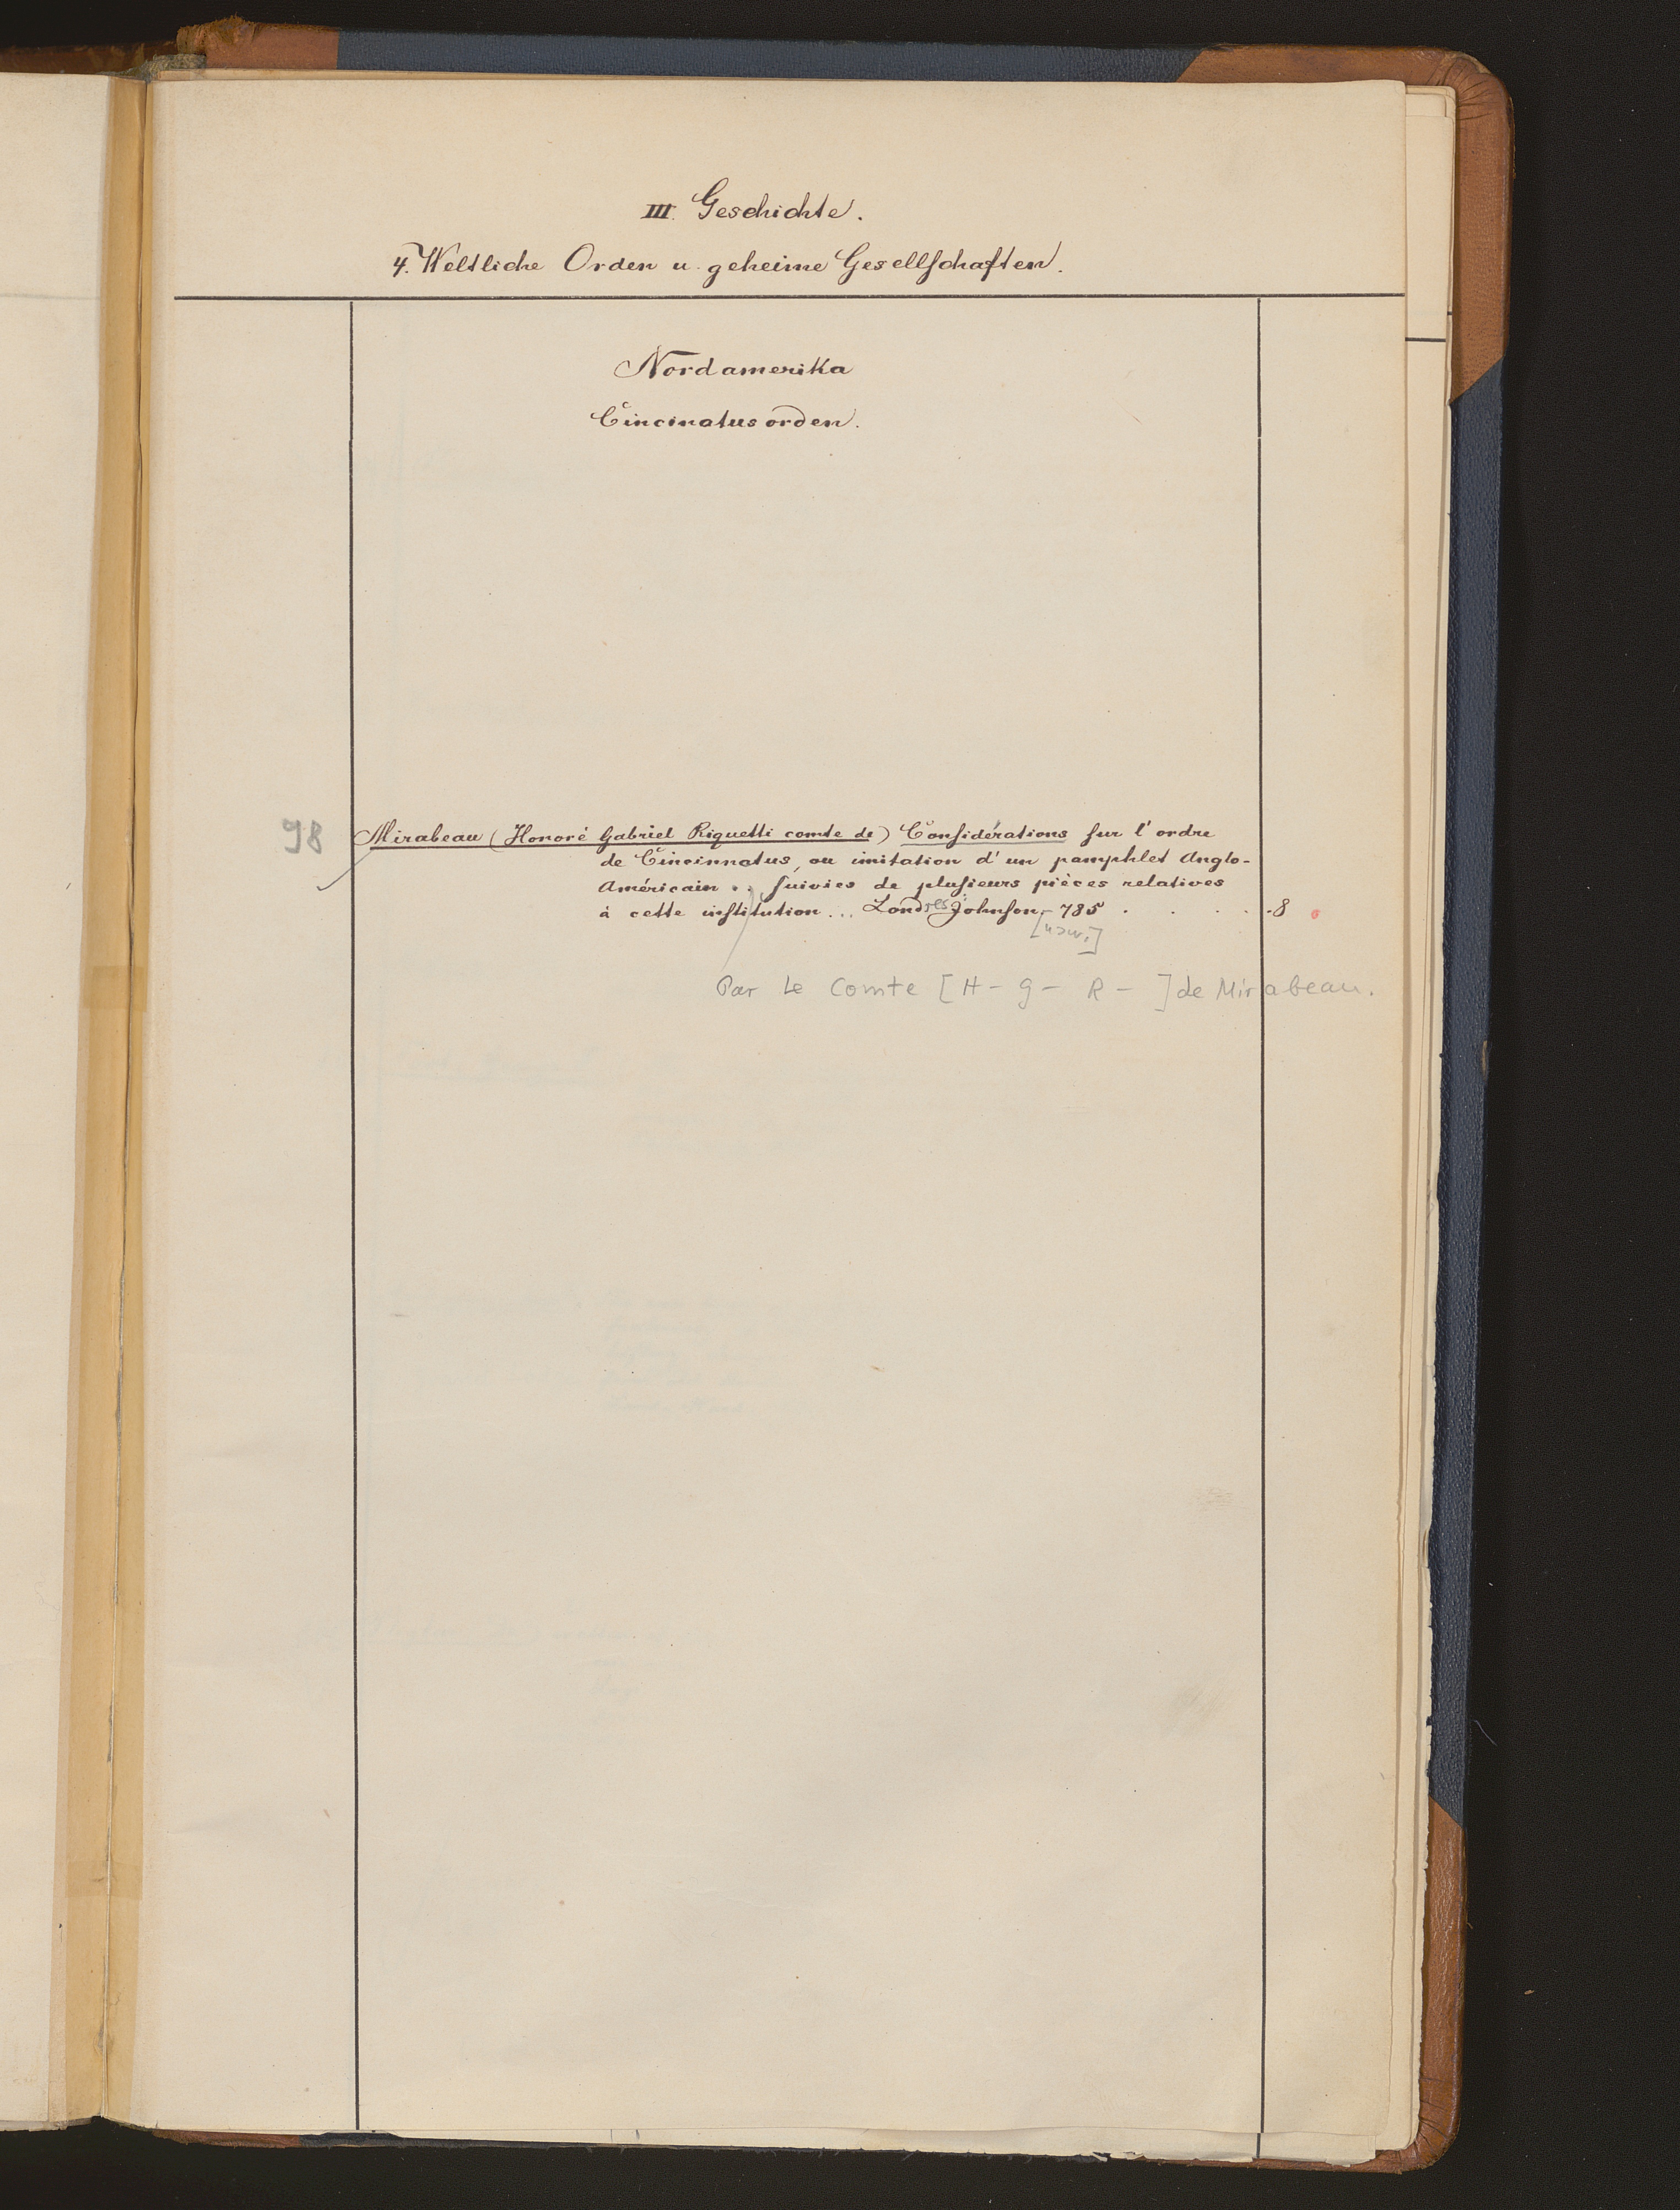 III. Geschichte.
4. Weltliche Orden u. geheime Gesellschaften.
Nordamerika
Cincinatusorden.
98 Mirabeau (Honoré Gabriel Riquetti comte de) Considérations sur l'ordre
de Cincinnatus, ou imitation d'un pamphlet Anglo-
Américain .. suivies de plusieurs pièces relatives
à cette institution... Londres: Johnson, 785 . . . . . 8
Par Le Comte [H- G- R- ] de Mirabeau.